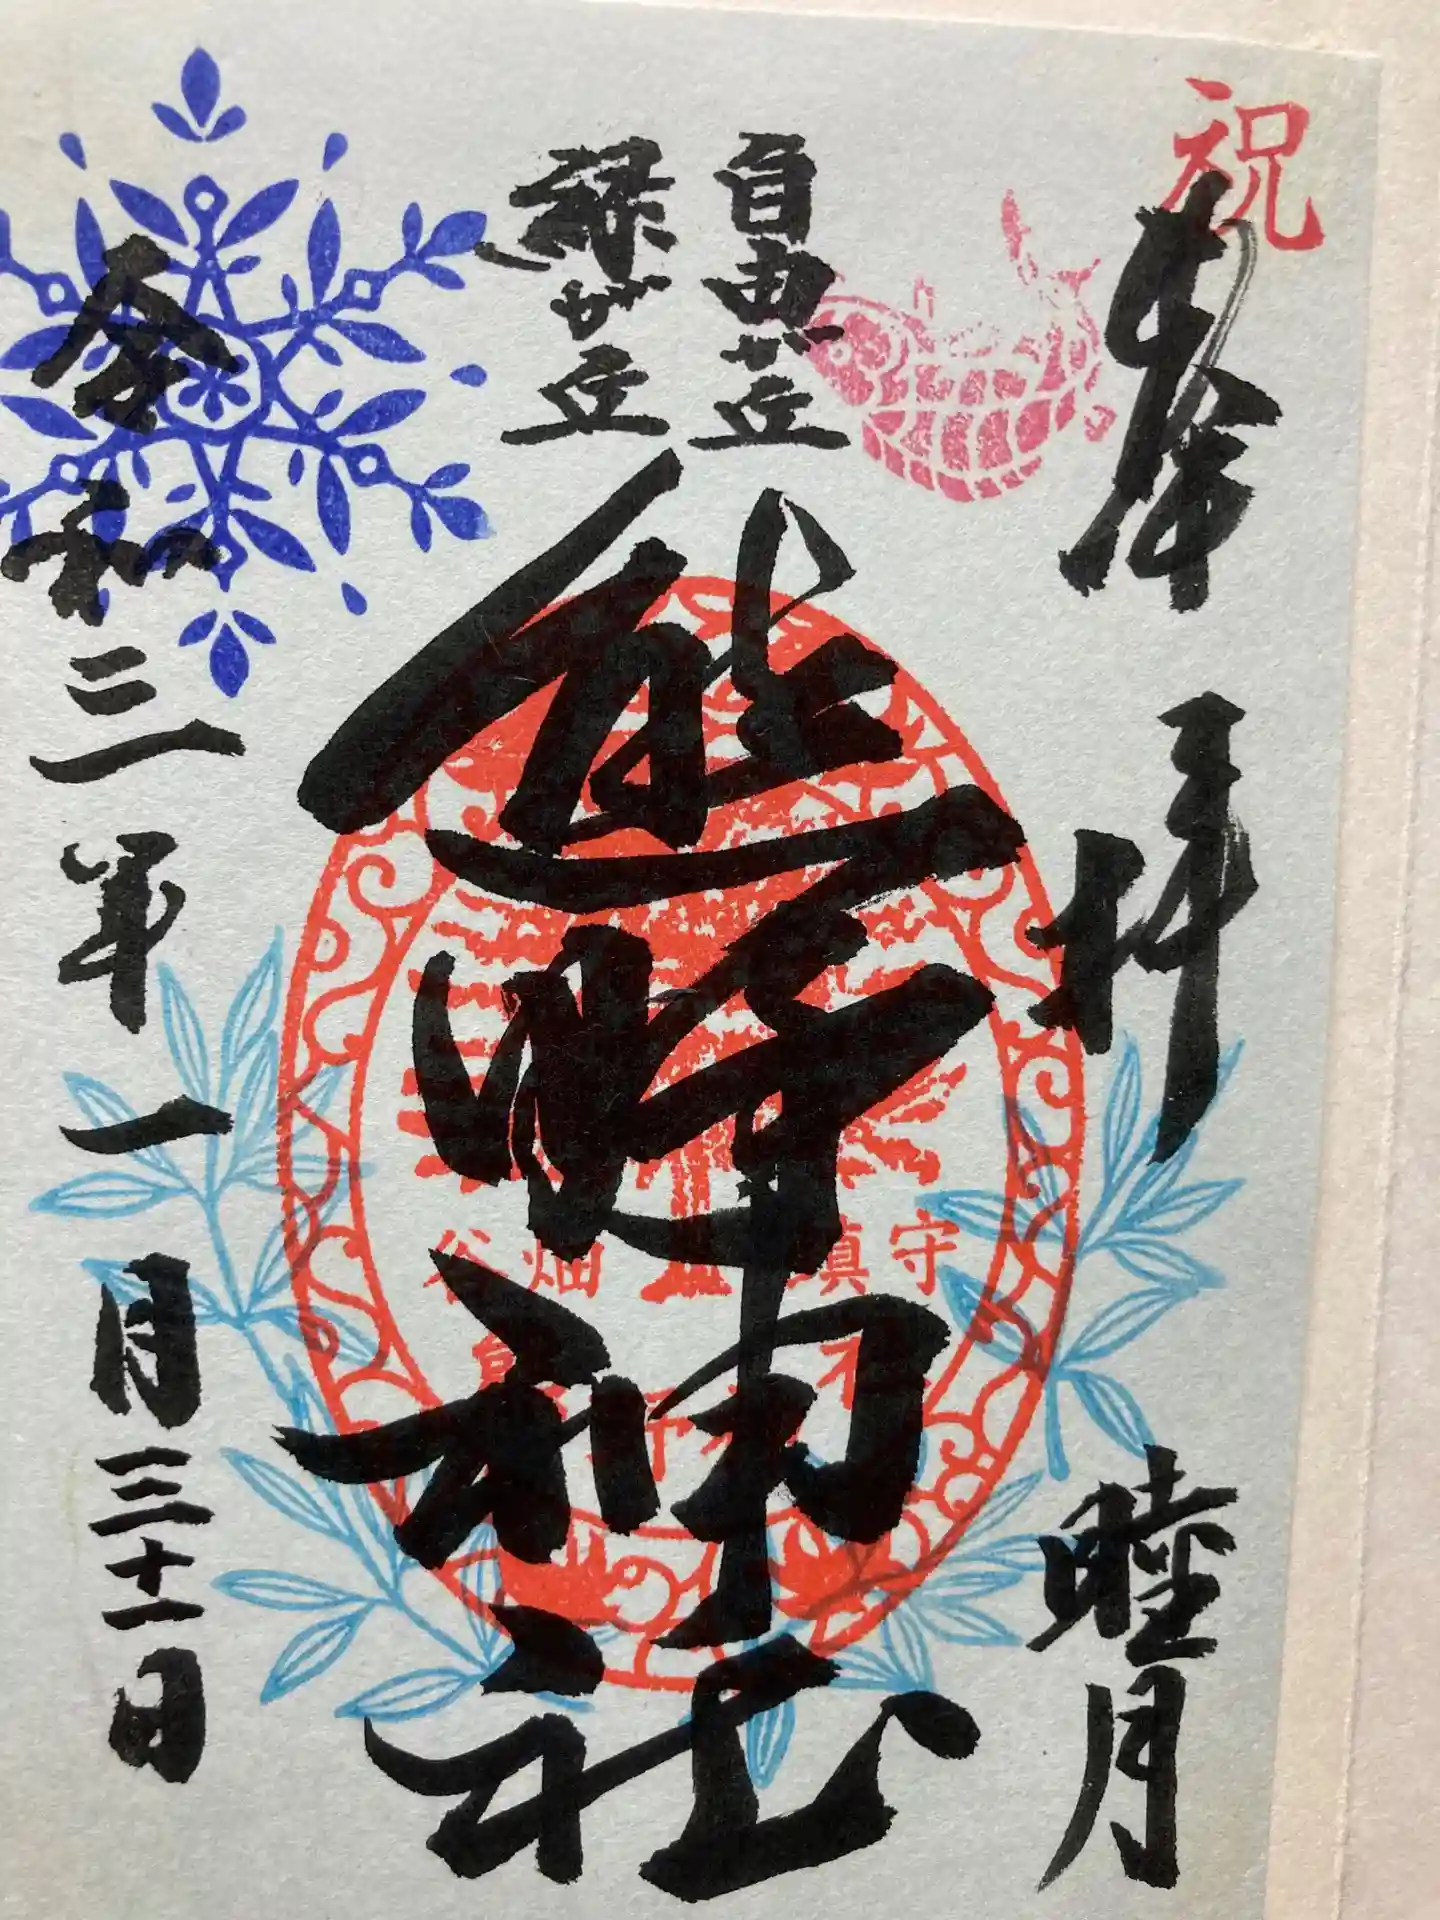 祝
奉拝
睦月
自由が丘
緑が丘
熊野神社
谷畑
鎮守
令和三年一月三十一日